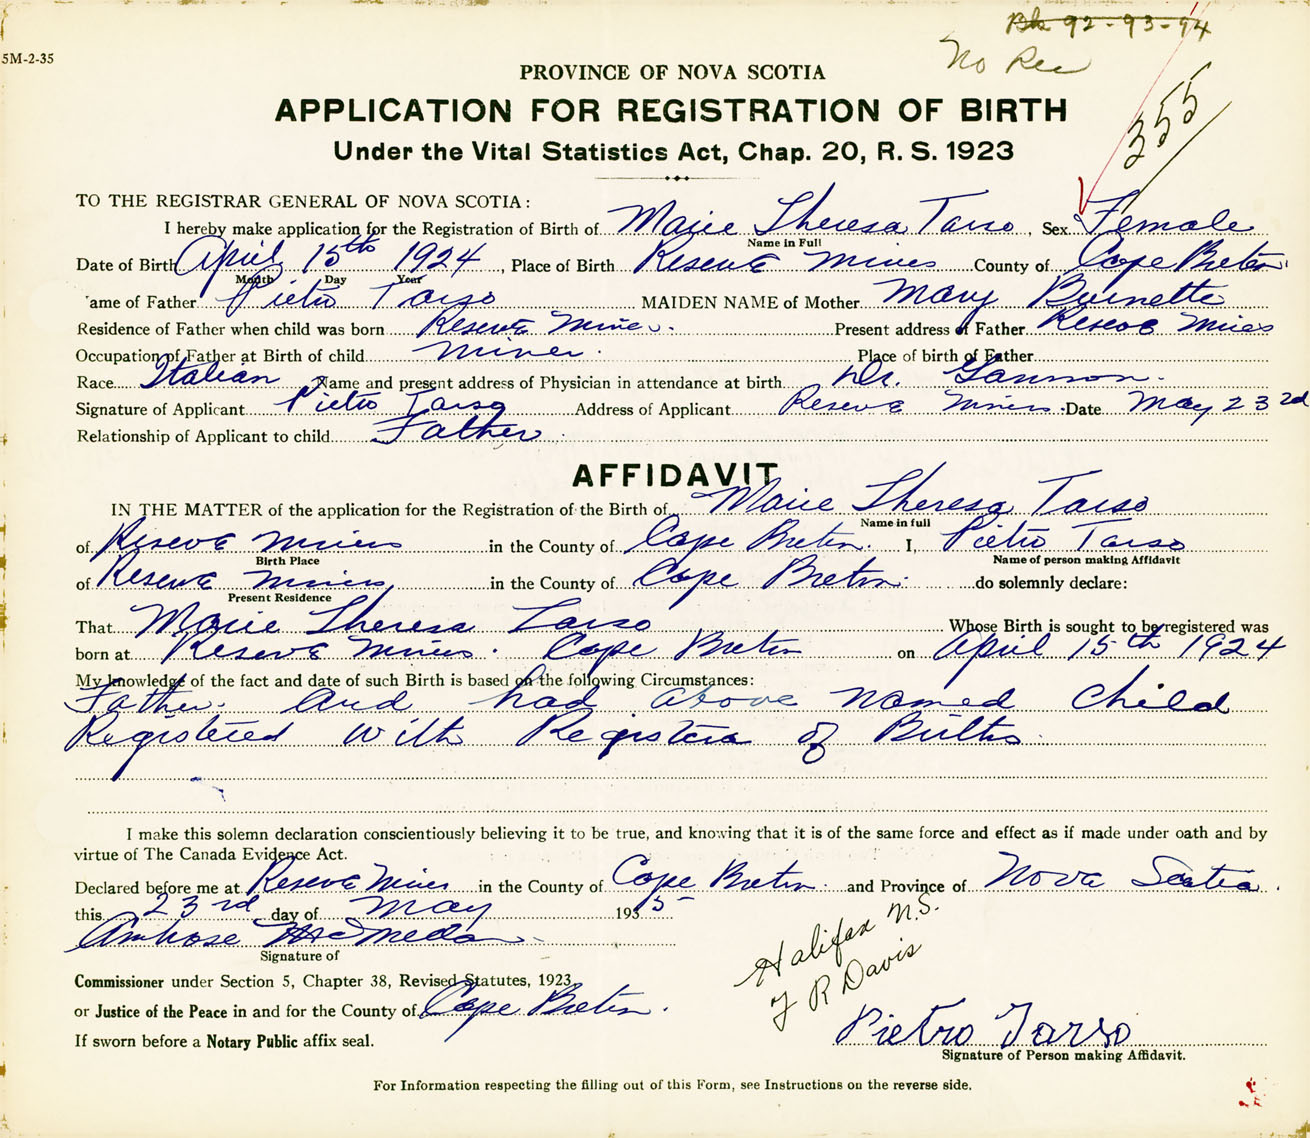 Bk 92-93-94
No Rec
5M-2-35
355
PROVINCE OF NOVA SCOTIA
APPLICATION FOR REGISTRATION OF BIRTH
Under the Vital Statistics Act, Chap. 20, R. S. 1923
TO THE REGISTRAR GENERAL OF NOVA SCOTIA:
I hereby make application for the Registration of Birth of Marie Theresa Tarso, Sex Female
Name in Full
Date of Birth April 15th 1924, Place of Birth Reserve Mines County of Cape Breton
Month Day Year
ame of Father Pietro Tarso MAIDEN NAME of Mother Mary Burnette
Residence of Father when child was born Reserve Mines. Present address of Father Reserve Mines
Occupation of Father at Birth of child Miner. Place of birth of Father
Race Italian Name and present address of Physician in attendance at birth Dr. Gannon.
Signature of Applicant Pietro Tarso Address of Applicant Reserve Mines. Date May 23rd
Relationship of Applicant to child Father
AFFIDAVIT
IN THE MATTER of the application for the Registration of the Birth of Marie Theresa Tarso
Name in full
of Reserve Mines in the County of Cape Breton. I, Pietro Tarso
Birth Place Name of person making Affidavit
of Reserve Mines, in the County of Cape Breton. do solemnly declare:
Present Residence
That Marie Theresa Tarso Whose Birth is sought to be registered was
born at Reserve Mines. Cape Breton on April 15th 1924
My knowledge of the fact and date of such Birth is based on the following Circumstances:
Father. And had above named child
Registered with Registera of Births.
I make this solemn declaration conscientiously believing it to be true, and knowing that it is of the same force and effect as if made under oath and by
virtue of The Canada Evidence Act.
Declared before me at Reserve Mines in the County of Cape Breton. and Province of Nova Scotia.
this 23rd day of May 1935
Ambrose
Signature of
Commissioner under Section 5, Chapter 38, Revised Statutes, 1923
or Justice of the Peace in and for the County of Cape Breton.
If sworn before a Notary Public affix seal.
Halifax N.S.
F R Davis
Pietro Tarso
Signature of Person making Affidavit.
For Information respecting the filling out of this Form, see Instructions on the reverse side.